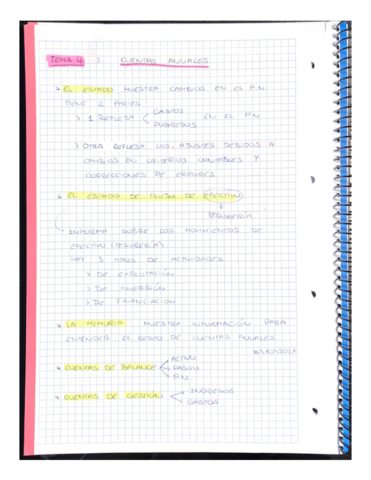 TEMA 4 1 CUENTAS ANUALES
* EL ESTADO MUESTRA CAMBIOS EN EL P.N
TIENE 2 PARTES
> 1 REFLEJA < GASTOS EN EL P.N
INGRESOS
> OTRA REFLEJA LOS AJUSTES DEBIDOS A
CAMBIOS EN CRITERIOS CONTABLES Y
CORRECCIONES DE ERRORES
* EL ESTADO DE FLUJO DE EFECTIVO
TESORERÍA
INFORMA SOBRE LOS MOVIMIENTOS DE
EFECTIVO (TESORERÍA)
HAY 3 TIPOS DE ACTIVIDADES
> DE EXPLOTACIÓN
> DE INVERSIÓN
> DE FINANCIACIÓN
* LA MEMORIA: MUESTRA INFORMACIÓN PARA
ENTENDER EL RESTO DE CUENTAS ANUALES
* CUENTAS DE BALANCE < ACTIVO
PASIVO
P.N
* CUENTAS DE GESTIÓN < INGRESOS
GASTOS